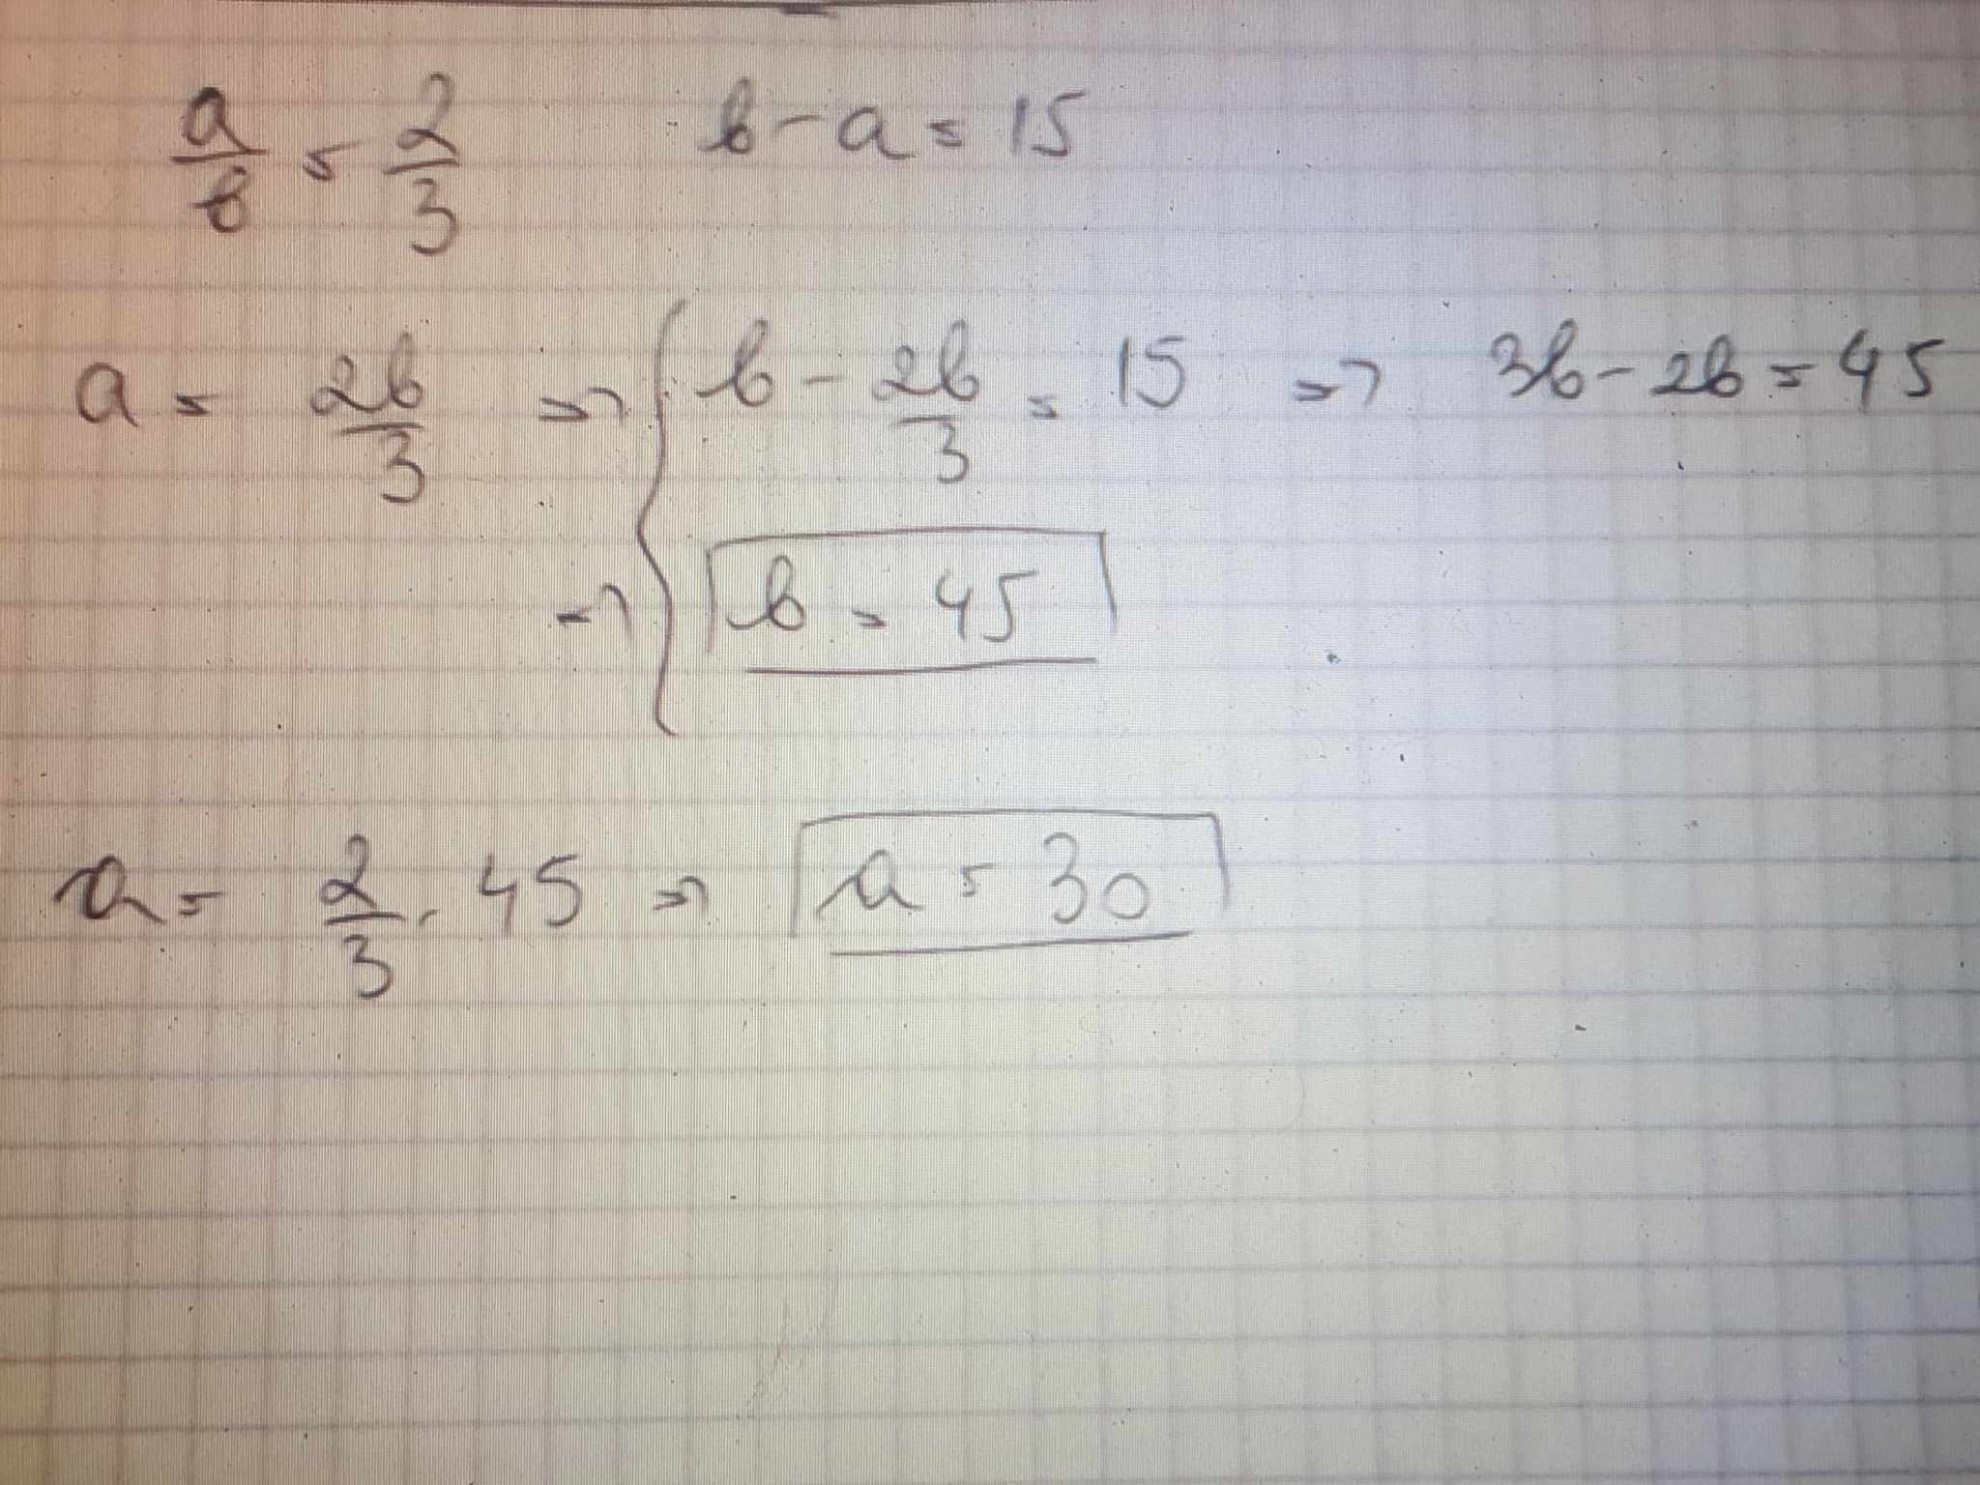 a/b = 2/3 b - a = 15
a = 2b/3 => { b - 2b/3 = 15 => 3b - 2b = 45
=> b = 45
a = 2/3 · 45 => a = 30